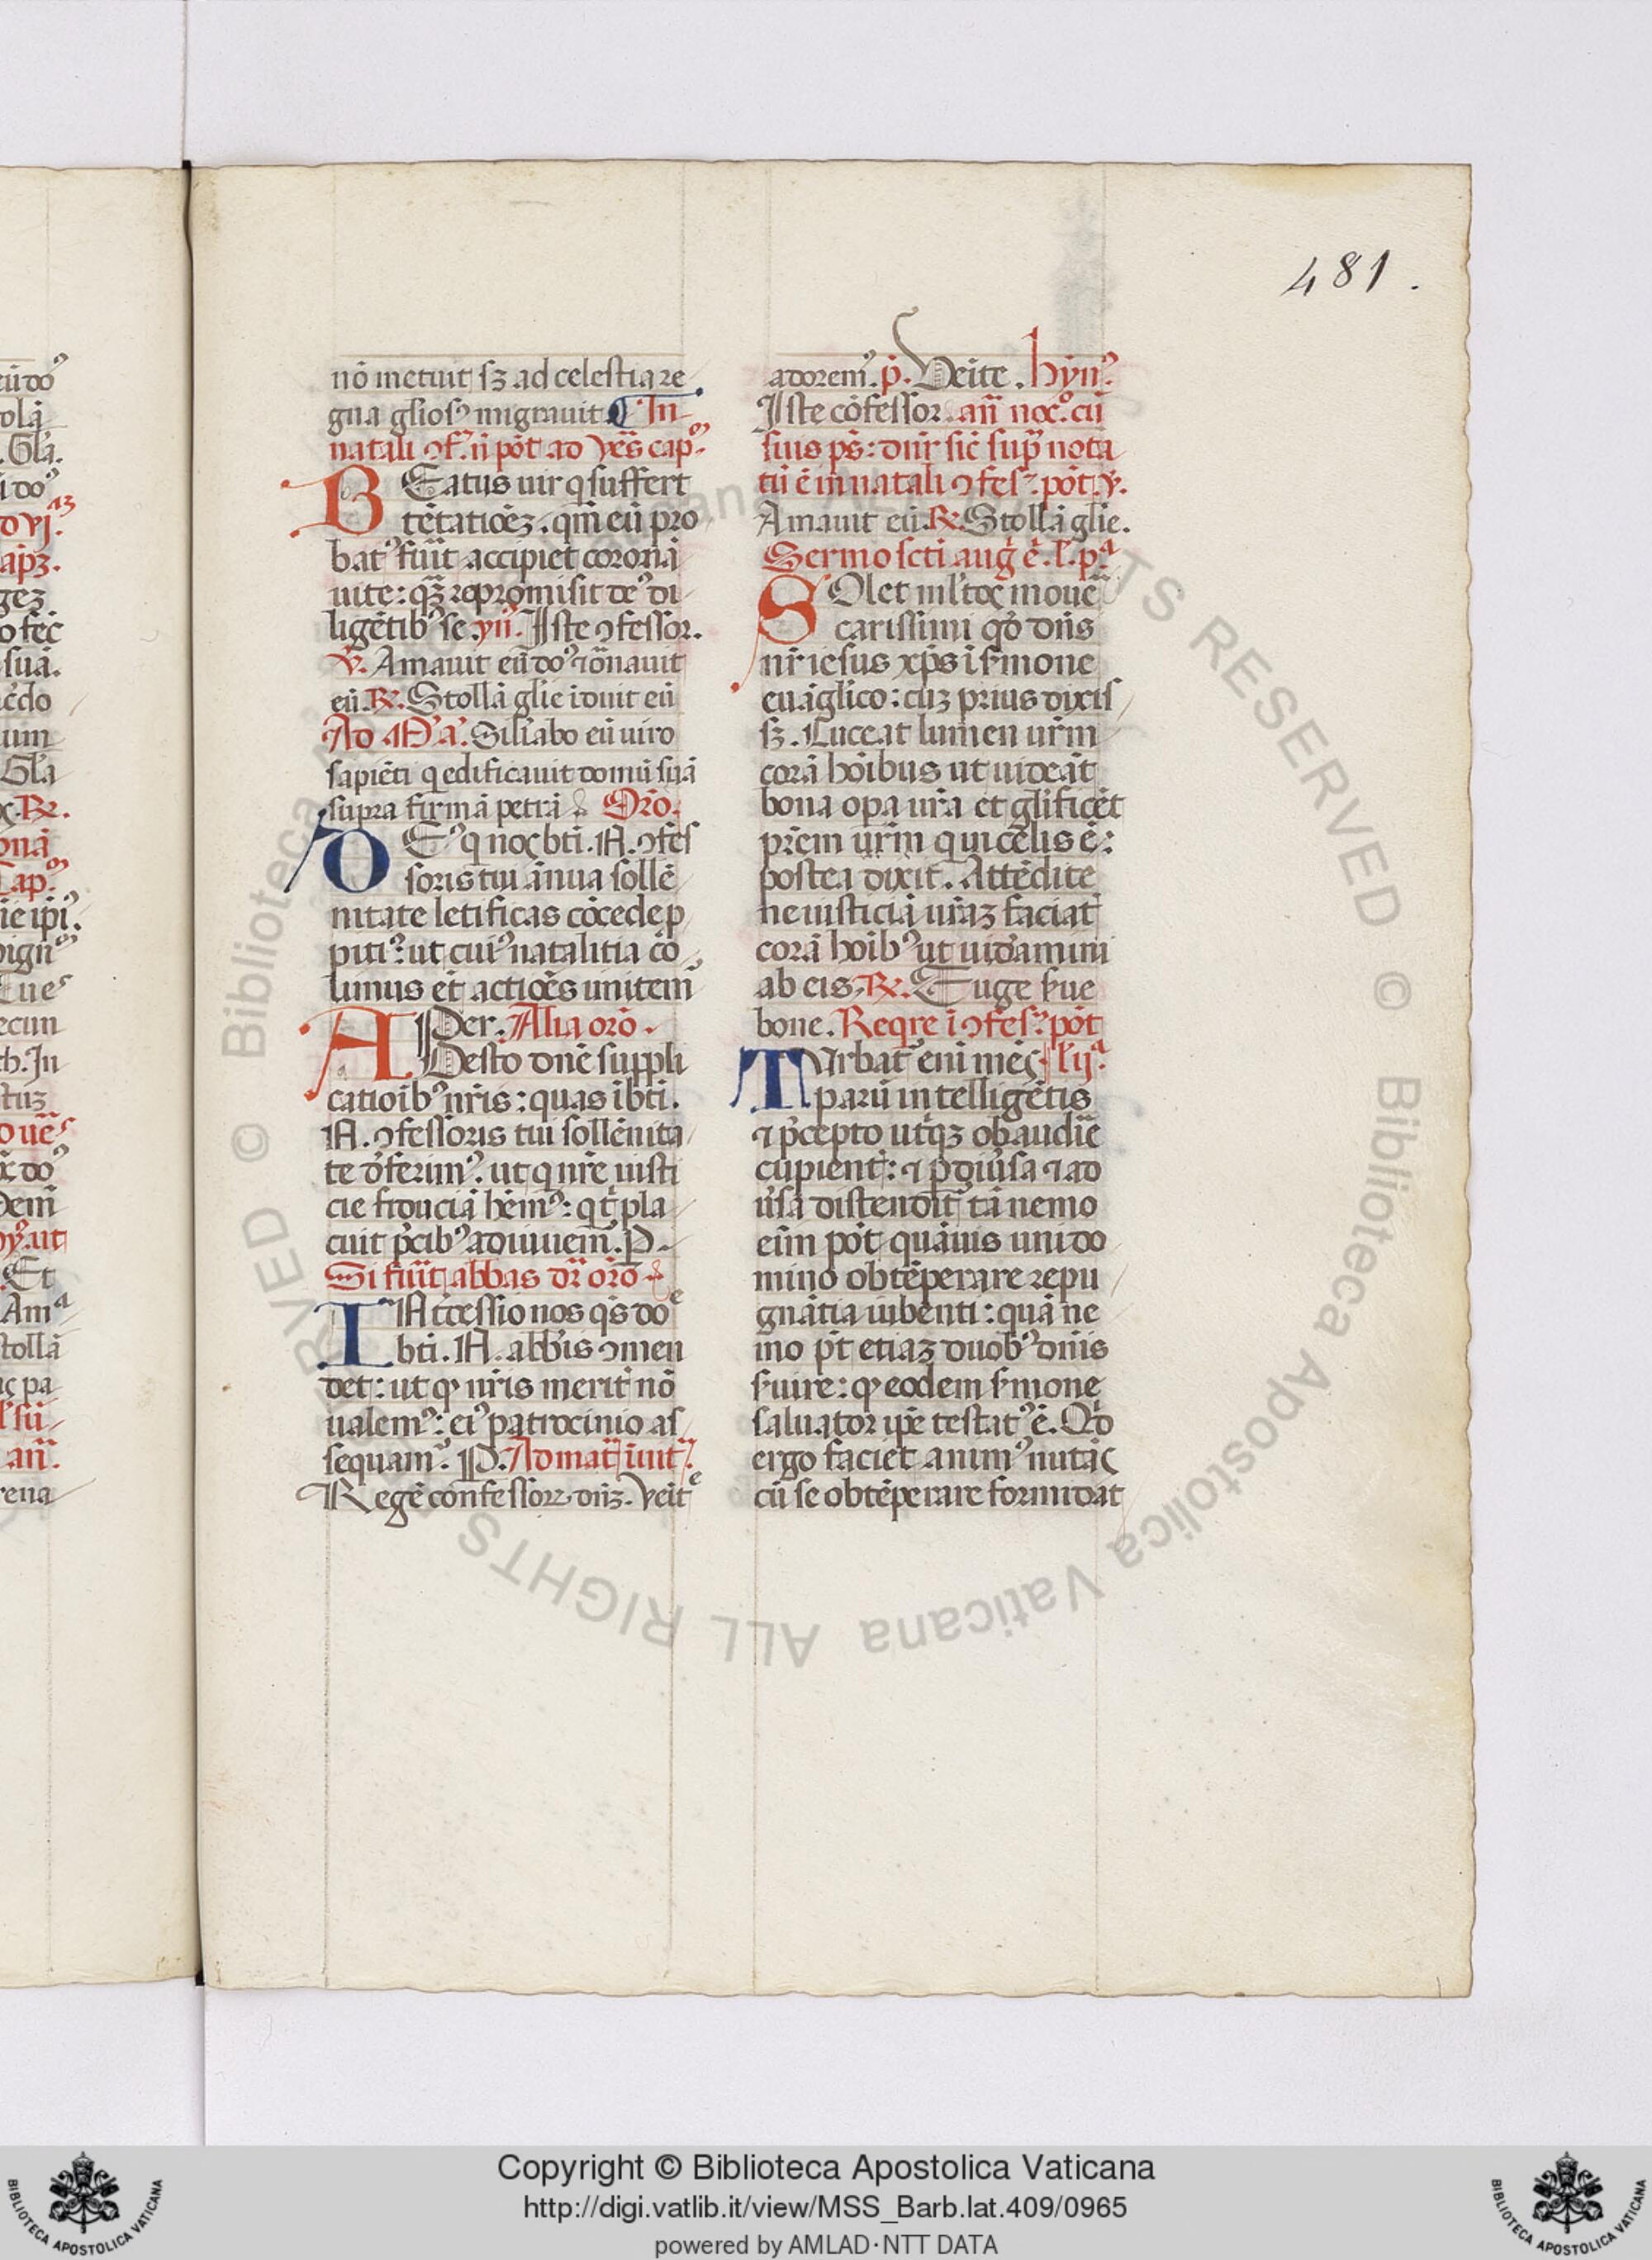 481.
nō metuit sꝫ ad celestia re
gna glios⁹ migrauit ¶ In
natali ꝯf. n̄ pōt ad ve᷒s cap⁹
BEatus uir q suffert
tētatiōeꝫ. qm̄ eū pro
bat⁹ fu͛it accipiet coronā
uite: quā repromisit de⁹ di
ligētib⁹ se. yn̄. Iste ꝯfessor.
℣. Amauit eū do⁹ ⁊ ōnauit
eū. ℞. Stollā glie īduit eū
Ad M̄a. Silīabo eū uiro
sapiēti q edificauit domū suā
supra firmā petrā Oro.
DE⁹ q nos bti. N. ꝯfes
soris tui ānua sollē
nitate letificas cōcede p
piti⁹: ut cui⁹ natalitia co
limus et actiōes imitem᷑
APer. Alia orō.
Desto dnē suppli
catioib⁹ nr̄is: quas ī bti.
N. ꝯfessoris tui sollēnita
te d̄ferim⁹. ut q nr̄e iusti
cie fiduciā hēm⁹: qͥ t͛ pla
cuit p̄cib⁹ adiuuem᷑. P.
Si fu͛it abbas dr̄ orō
INtc̄essio nos qs do͛
bti. N. abbis ꝯmen
det: ut qͥ nr̄is merit᷑ nō
ualem⁹: ei⁹ patrocinio as
sequam᷑. P. Ad mat͛ īuit᷑.
Regē confessorꝝ dn̄ꝫ. Veīt͛
adorem⁹. p̄. Veīte. hyn⁹.
Iste cōfessor. an̄ noc⁹. cū
suis ps̄: dn̄r sic̄ sup̄ nota
tū ē in natali ꝯfes⁹. pōt. ℣.
Amauit eū. ℞. Stollā glie.
Sermo scti aug᷑ ē. l. pᵃ
SOlet ml̄tos moue͛
carissimi qō dn̄s
nr̄ iesus xp̄s ī s͛mone
euāglico: cuꝫ prius dixis
sꝫ. Luceat lumen ur̄m
corā hōibus ut uideāt
bona opa ur̄a et glificēt
prēm ur̄m qui celis ē:
postea dixit. Attēdite
ne iusticiā ur̄aꝫ faciat᷑
corā hoib⁹ ut uid͛amini
ab eis. ℞. Euge s͛ue
bone. Reqre ī ꝯfes⁹. pōt
TUrbat᷑ eni mēs lͥijᵃ.
paru͛ intelligētis
⁊ p̄cepto utͥqꝫ obaudīe
cupient᷑: ⁊ p diu͛sa ⁊ ad
u͛sa distendit᷑ tā nemo
eīm pōt quāuis uni do
mino obtēperare repu
gnātia iubenti: quā ne
mo pt̄ etiaꝫ duob⁹ dn̄is
s͛uire: qͥ eodem s͛mone
saluator ipē testat᷑ ē. Qͥd
ergo faciet anim⁹ nutās
cū se obtēperare formidat
Copyright © Biblioteca Apostolica Vaticana
http://digi.vatlib.it/view/MSS_Barb.lat.409/0965
powered by AMLAD·NTT DATA